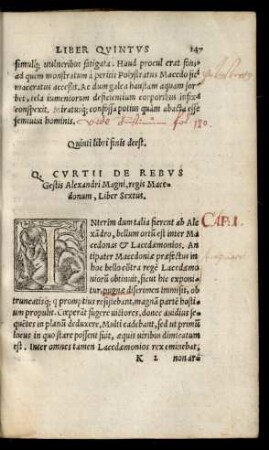 LIBER QUINTVS 147
simulq́; vulneribus fatigata. Haud procul erat fons
ad quem monstratum à peritis Polystratus Macedo siti
maceratus accessit. Ac dum galea haustam aquam sor
bet, tela iumentorum deficientium corporibus infixa
conspexit. Miratusq́; confossa potius quàm abacta esse
semiuiui hominis.
fol 150
Quinti libri finis deest.
Q. CVRTII DE REBVS
Gestis Alexandri Magni, regis Mace-
donum, Liber Sextus.
CAP. I.
INterim dum talia fierent ab Ale
xãdro, bellum ortũ est inter Ma
cedonas & Lacedæmonios. An
tipater Macedoniæ præfectus in
hoc bello cõtra regẽ Lacedæmo
niorũ obtinuit, sicut hic exponi
tur. pugnæ discrimen immisit, ob
truncatisq́; q̃ promptius resistebant, magnã partẽ hosti
um propulit. Cœperãt fugere victores, donec auidius se-
quẽtes in planũ deduxere. Multi cadebant, sed ut primũ
locus in quo stare possent fuit, æquis uiribus dimicatum
est. Inter omnes tamen Lacedæmonios rex eminebat,
K 2 non arm̃